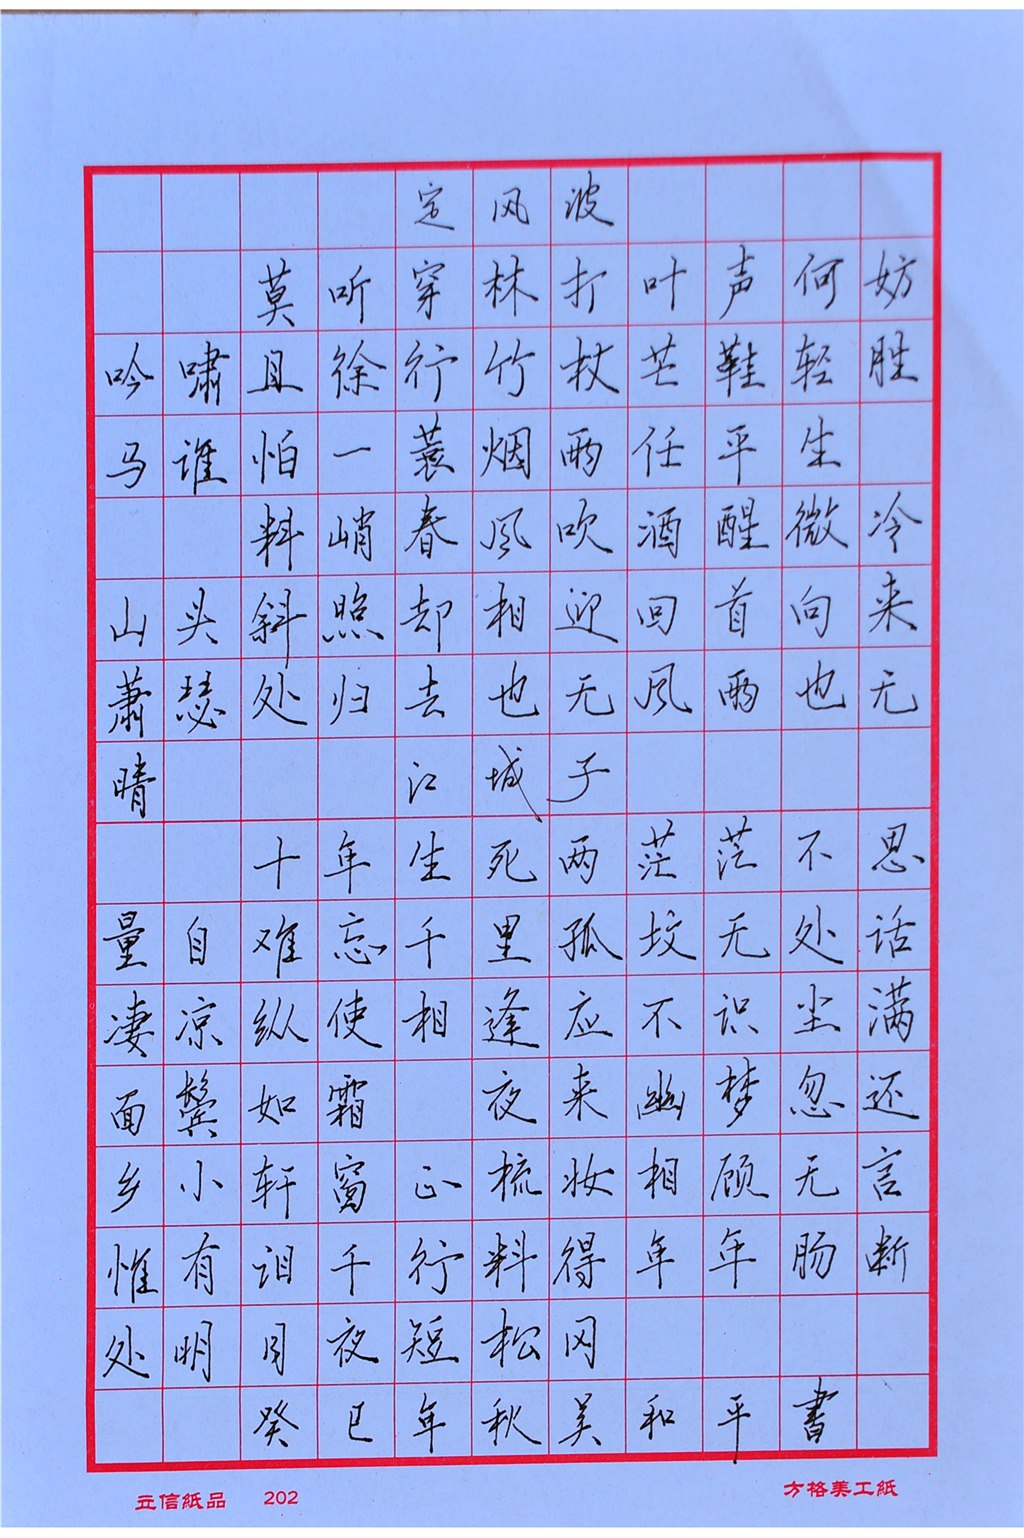 定风波
莫听穿林打叶声何妨
吟啸且徐行竹杖芒鞋轻胜
马谁怕一蓑烟雨任平生
料峭春风吹酒醒微冷
山头斜照却相迎回首向来
萧瑟处归去也无风雨也无
晴 江城子
十年生死两茫茫不思
量自难忘千里孤坟无处话
凄凉纵使相逢应不识尘满
面鬓如霜 夜来幽梦忽还
乡小轩窗正梳妆相顾无言
惟有泪千行料得年年肠断
处明月夜短松冈
癸巳年秋吴和平書
立信紙品 202 方格美工紙